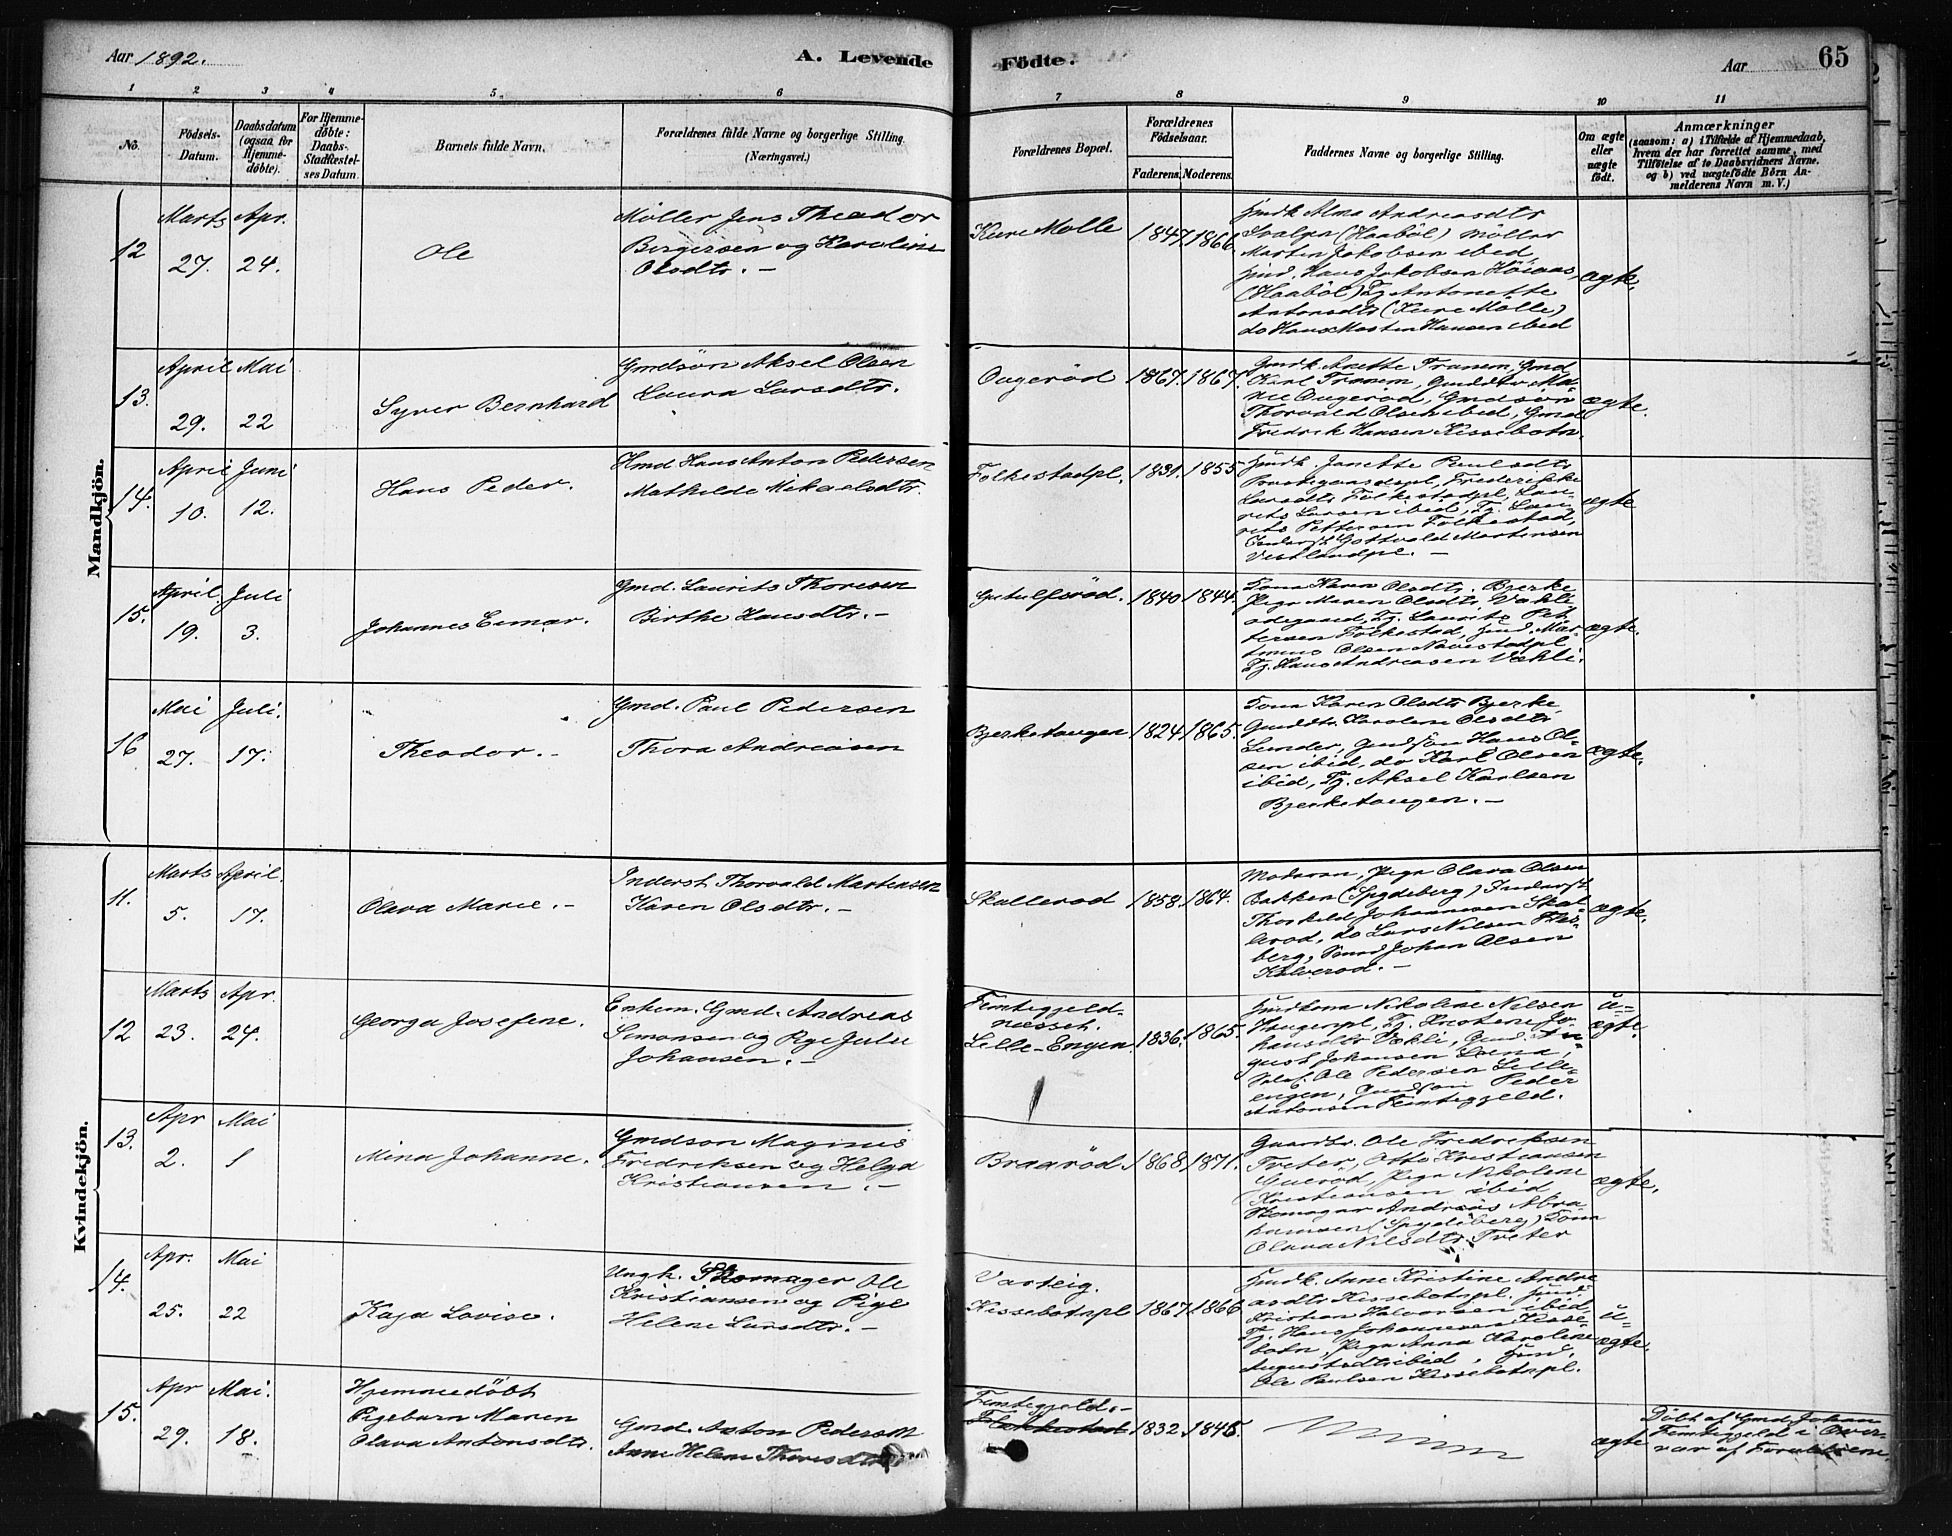 Aar 1892.
A. Levende
Födte.
Aar
65
1 2 3 4 5 6 7 8 9 10 11
No.
Födsels-Datum.
Daabsdatum (ogsaa for Hjemme-döbte).
For Hjemme-döbte: Daabs-Stadfæstel-ses Datum.
Barnets fulde Navn.
Forældrenes fulde Navne og borgerlige Stilling.
(Næringsvei.)
Forældrenes Bopæl.
Forældrenes Födselsaar.
Faderens. Moderens.
Faddernes Navne og borgerlige Stilling.
Om ægte eller uægte födt.
Anmærkninger
(saasom: a) i Tilfælde af Hjemmedaab,
hvem der har forrettet samme, med
Tilföielse af to Daabsvidners Navne.
og b) ved uægtefödte Börn An-
melderens Navn m. V.)
Mandkjön.
12 Marts 27. Apr. 24.
Ole
Møller Jens Theodor
Borgersen og Karoline
Olsdtr. -
Kure Mølle
1847 1866.
Hmdk. Alma Andreasdtr
(Haabøl) Møller
Martin Jakobsen ibid
Hmd. Hans Jakobsen
(Haabøl) Tj. Antonette
Antonsdtr (Kure Mølle)
do Hans Martin Hansen ibid
ægte.
13. April 29. Mai 22
Syver Bernhard
Gmdsøn Aksel Olsen
Laura Larsdtr.
Ougerød
1867. 1867.
Gmdk. Anette Tranem, Gmd
Karl Tranem, Gmddtr Ma-
rie Ougerød, Gmdsøn
Thorvald Olsen ibid, Gmd
Fredrik Hansen Kissebotn.
ægte.
14. April 10. Juni 12.
Hans Peder.
Hmd Hans Anton Pedersen
Mathilde Mikaelsdtr.
Folkestadpl.
1831. 1855
Hmdk. Janette Paulsdtr
Frederikke
Larsdtr Folkestadpl, Lau-
rits Larsen ibid, Tj. Lau-
rits Pettersen Folkestad,
Inderst Gottvald Martinsen
Vestlandpl. -
ægte
15. April 19. Juli 3.
Johannes Eimar.
Gmd. Laurits Thoresen
Birthe Hansdtr. -
Gutulfsrød.
1840 1844.
Kona Karen Olsdtr. Bjerke
Pige Maren Olsdtr. Vahle
odegaard, Tj. Laurits Pet-
tersen Folkestad, Hmd. Mar-
tinius Olsen Navestadpl
Tj. Hans Andreasen Vekli.
ægte.
16 Mai 27. Juli. 17.
Theodor. -
Gmd. Paul Pedersen
Thora Andreasen
Bjerketangen
1824 1865.
Kona Karen Olsdtr Bjerke,
Gmddtr. Karoline Olsdtr
Lunder, Gmdsøn Hans Ol-
sen ibid, do Karl Olsen
ibid, Tj. Aksel Karlsen
Bjerketangen. -
ægte.
Kvindekjön.
11. Marts 5. April. 17.
Olava Marie. -
Inderst Thorvald Martinsen
Karen Olsdtr. -
Skallerød
1858. 1864.
Moderen, Pige Olava Olsen
Bakken (Spydeberg) Inderst
Thorkild Johannesen Skal-
lerød, do Lars Nilsen
berg, Johan Olsen
Kalverød. -
ægte.
12 Marts 23. Apr. 24.
Georga Josefine.
Enkem. Gmd. Andreas
Simonsen og Pige Julie
Johansen. -
Femtegjeld-
næsset.
Lille-Engen
1836. 1865.
Hmdkona Nikoline Nilsen
Haugenpl, Tj. Kristine Jo-
hansdtr Vekli, Gmd. Au-
gust Johansen Loena,
Ole Pedersen Lille-
engen, Gmdsøn Peder
Antonsen Femtegjeld.
u-
ægte.
13. Apr 2. Mai 1
Mina Johanne.
Gmdsøn Magnus
Fredriksen og Helga
Kristiansen. -
Braarød
1868. 1871.
Gaardbr. Ole Fredriksen
Tveter, Otto Kristiansen
Pige Nikoline
Kristiansen ibid
Skomager Andreas Abra
hamsen (Spydeberg) Kona
Olava Nilsdtr. Tveter
ægte.
14. Apr. 25. Mai 22
Kaja Lovise.
Ungk. Skomager Ole
Kristiansen og Pige
Helene Larsdtr. -
Varteig.
Kissebotnpl
1867. 1866
Hmdk. Anne Kristine Andre
asdtr Kissebotnpl. Hmd
Kristian Halvorsen ibid,
Tj. Hans Johannesen Kisse-
botn, Pige Anna Karoline
Augustsdtr ibid, Hmd.
Ole Paulsen Kissebotnpl.
u-
ægte.
15. Apr 29. Mai. 18.
Hjemmedøbt
Pigebarn Maren
Olava Antonsdtr.
Gmd. Anton Pedersen
Anne Helene Thorisdtr
Femtegjeld.-
1832. 1848.
ægte
Døbt af Gmd. Johan
Femtegjeld i Over-
vær af Forældrene.